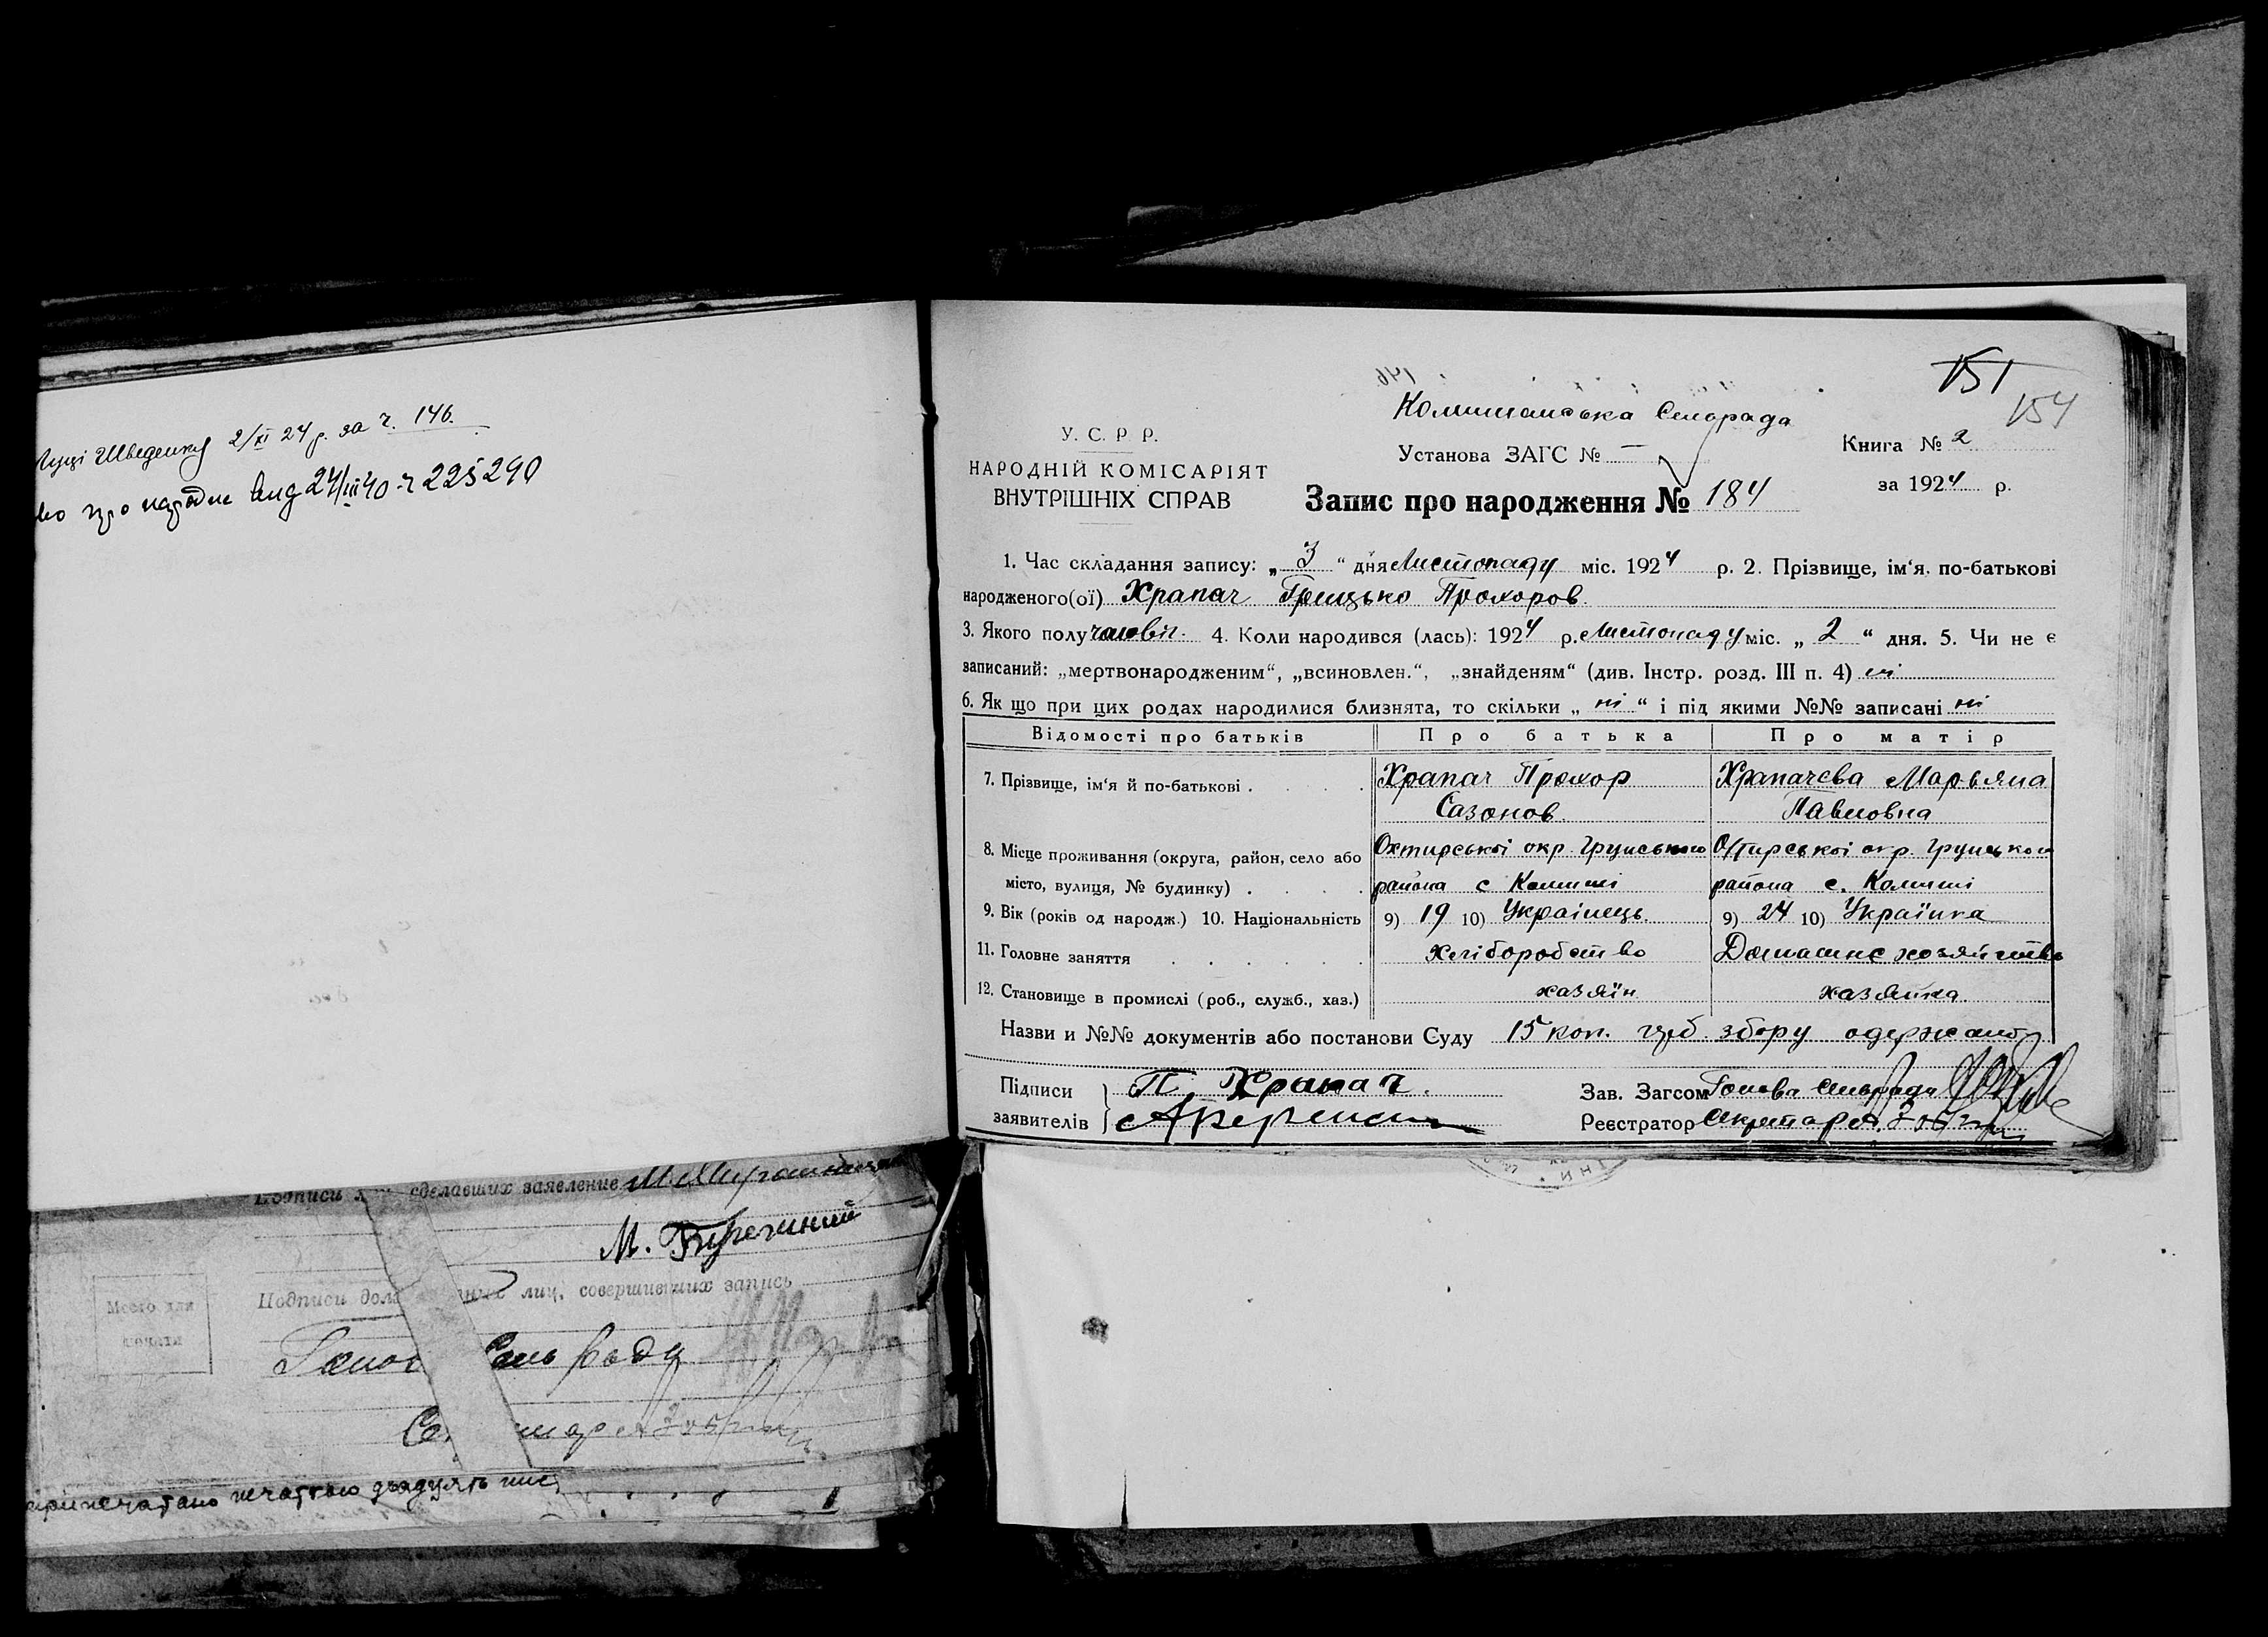 Луці Шведенку 2/XI 24 р. за ч. 146.
во про народж вид 24/III 40 ч 225290
Подписи сделавших заявление М. Мирошниченко
М.
Место для
печати
Подписи лиц, совершивших запись
Голов Сель Ради
припечатано печаткою двадцять
151
154
Комишанська Сельрада
У. С. Р Р.
Установа ЗАГС № —
Книга № 2
НАРОДНІЙ КОМІСАРІЯТ
ВНУТРІШНІХ СПРАВ
за 1924 р.
Запис про народження № 184
1. Час складання запису: „ 3 “ дня Листопаду міс. 1924 р. 2. Прізвище, ім‘я, по-батькові
народженого(ої) Храпач Грицько Прохоров
3. Якого полу чоловіч. 4. Коли народився (лась): 1924 р. Листопаду міс. „ 2 “ дня. 5. Чи не є
записаний: „мертвонародженим“, „всиновлен.“, „знайденям“ (див. Інстр. розд. III п. 4) ні
6. Як що при цих родах народилися близнята, то скільки „ ні “ і під якими №№ записані ні
Відомості про батьків Про батька Про матір
7. Прізвище, ім‘я й по-батькові . Храпач Прохор Храпачєва Марьяна
Сазонов Павловна
8. Місце проживання (округа, район, село або Охтирської окр. Грунського Охтирської окр. Грунського
місто, вулиця, № будинку) . района с Комиші района с. Комиші
9. Вік (років од народж.) 10. Національність 9) 19 10) Українець 9) 24 10) Українка
11. Головне заняття хліборобство Домашнє хозяйство
12. Становище в промислі (роб., служб., хаз.) хазяїн хазяйка
Назви и №№ документів або постанови Суду 15 коп. губ. збору одержано
Підписи П Храпач.
заявителів
Зав. Загсом Голова сільради
Реєстратор Секретар